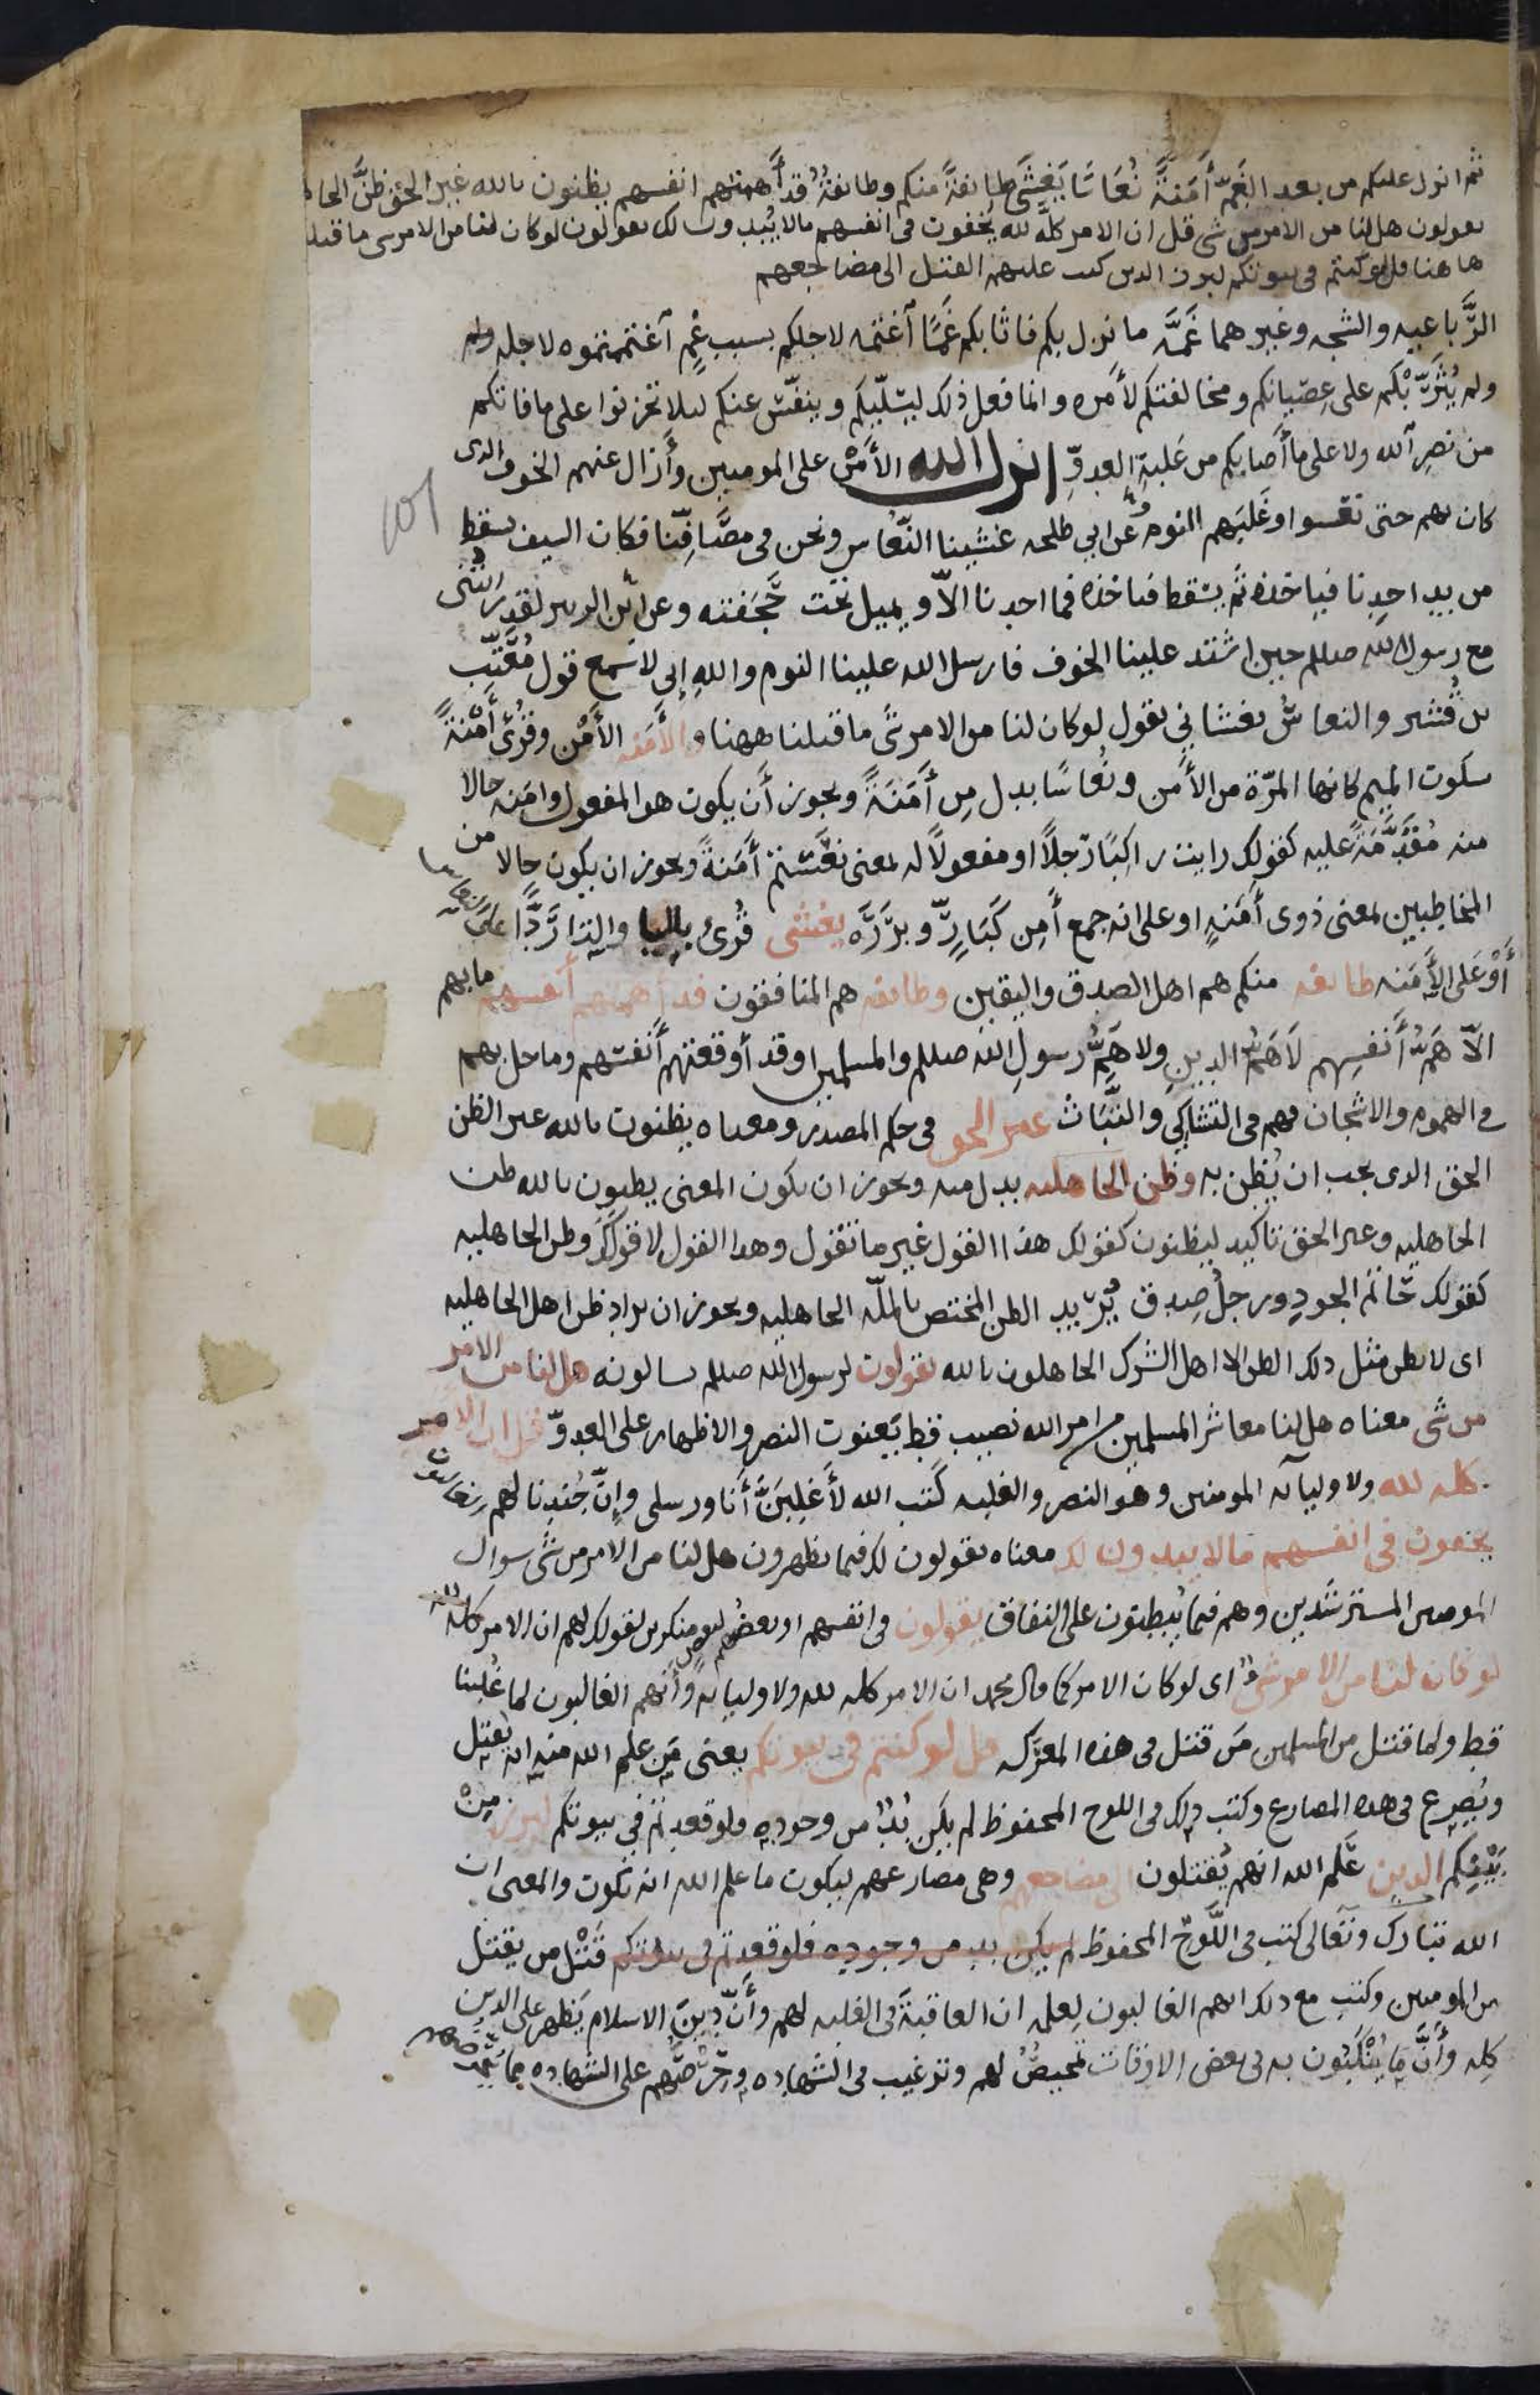 ثم انزل عليكم من بعد الغَمّ أَمَنةً نُعَاسًا يَغْشَى طايفةً منكم وطايفةٌ قد أَهمتهم انفسهم يظنون بالله غير الحق ظَنَّ الجا
يقولون هل لنا من الامر من شى قل ان الامر كلَّه لله يخفون فى انفسهم مالا يُبدون لك يقولون لو كان لنا من الامر شى ما قتلنا
هاهنا قل لو كنتم فى بيوتكم لبرز الذين كتب عليهم القتل الى مضاجعهم
الرَّباعيه والشجه وغيرهما غَمَّه ما نزل بكم فاثابكم غَمًّا اَغتمه لاجلكم بسبب غمٍّ اَغتممتموه لاجله ولم
ولم يُثَرِّبْكم على عِصْيانكم ومخالفتكم لأمره وانما فعل ذلك ليسَلّيكم وينفّس عنكم ليلا تحزنوا على ما فاتكم
من نصرِ اَلله ولا على ما أصابكم من غَلَبةِ العدوِّ انزل الله الأَمْنَ على المومنين وأَزال عنهم الخوف الدى
كان بهم حتى نعسوا وغَلَبَهم النوم وعن ابي طلحه غشينا النّعاس ونحن فى مصَافِّنا فكان السيف يسقط
من يد احدنا فياخذه ثم يسْقط فياخذه فما احدنا الاّ ويميل تحت حَجَفَته وعن ابن الزبير لقد رايتنى
مع رسول الله صللم حين اشتد علينا الخوف فارسل الله علينا النوم واللهِ إنى لاسمع قول مُعَتِّب
بن قُشير والنعاسُ يغشانى يقول لو كان لنا من الامر شئ ما قتلنا ههنا والأَمَنه الأَمْن وقُرئ أَمْنَةً
بسكون الميم كانها المرّة من الأَمن ونُعاسًا بدل مِن أَمَنَةً ويجوز أَن يكون هو المفعول وامنه حالا
منه مُقَدَّمَةً عليه كقولك رايت راكبًا رجلاً او مفعولاً له بمعنى نَعَسْتم أَمَنةً ويجوز ان يكون حالا من
المخاطبين بمعنى ذوى أَمَنهٍ او على انه جمع أَمِن كَبَارٍّ وبرَرَه يغشى قُرئ باليا والتا رَدًّا على النعاس
أَوْ عَلى الأَمَنه طايفه منكم هم اهل الصدق واليقين وطايفه هم المنافقون قد اهمتهم أنفسهم ما بهم
الاّ هَمُّ أَنفسِهم لَا هَمُّ الدينِ ولا هَمُّ رسولِ الله صللم والمسلمين او قد أَوقعتهم أَنفسهم وما حل بهم
فى الهموم والاشجان فهم فى التشاكي والتَّبَاثّ غير الحق فى حكم المصدر ومعناه يظنون بالله غير الظن
الحق الدى يجب ان يُظن به وظن الجاهليه بدل منه ويجوز ان يكون المعنى يظنون بالله ظن
الجاهليه وغير الحق تاكيد ليظنون كقولك هذا القول غير ما تقول وهدا القول لا قولَكَ وظن الجاهليه
كقولك حَاتم الجودِ ورجلُ صِدق يُرِيد الظن المختص بالملّه الجاهليه ويجوز ان يراد ظن اهل الجاهليه
اى لا يظن مثل ذلك الظن الا اهل الشرك الجاهلون بالله يقولون لرسول الله صللم يسالونه هل لنا من الامر
من شئ معناه هل لنا معاشر المسلمين من امر الله نصيب قط يَعنون النصر والاظهار على العدوّ قل ان الامر
كله لله ولاوليآئه المومنين وهو النصر والغلبه كَتب الله لَأَغلبَنَّ أَنا ورسلى وإِنَّ جُندنا لهم الغالبون
يخفون فى انفسهم مالا يبدون لك معناه يقولون لك فيما يظهرون هل لنا من الامر من شئ سوال
المومنين المسترشدين وهم فيما يُبطنون على النفاق يقولون فى انفسهم او بعضُهم لبعضٍ منكرين لقولك لهم ان الامر كله لله
لو كان لنا من الامر شئ اى لو كان الامر كما قال محمد ان الامر كله لله ولاوليايه وأَنهم الغالبون لما غُلِبنا
قط ولما قتل من المسلمين مَن قتل فى هذه المعركه قل لو كنتم فى بيوتكم يعنى مَن علم الله منه انه يُقتل
ويُصرع فى هذه المصارع وكتب ذلك فى اللوح المحفوظ لم يكن بُدّ من وجوده فلو قعدتم فى بيوتكم لبرز مِنْ
بَيْنِكم الذين عَلم الله انهم يُقتلون الى مضاجعهم وهى مصارعهم ليكون ما علم الله انه يكون والمعنى ان
الله تبارك وتعالى كتب فى اللّوحِ المحفوظ لم يكن بد من وجوده فلو قعدتم فى بيوتكم قَتْل من يقتل
من المومنين وكتب مع ذلك انهم الغالبون لِعلمه ان العاقبةَ فى الغلبه لهم وأَنّ دِينَ الاسلام يَظهر على الدين
كِله وأَنَّ ما يُنْكَبون به فى بعض الاوقات تمحيصٌ لهم وترغيب فى الشهاده وحِرْصَهم على الشهاده مما